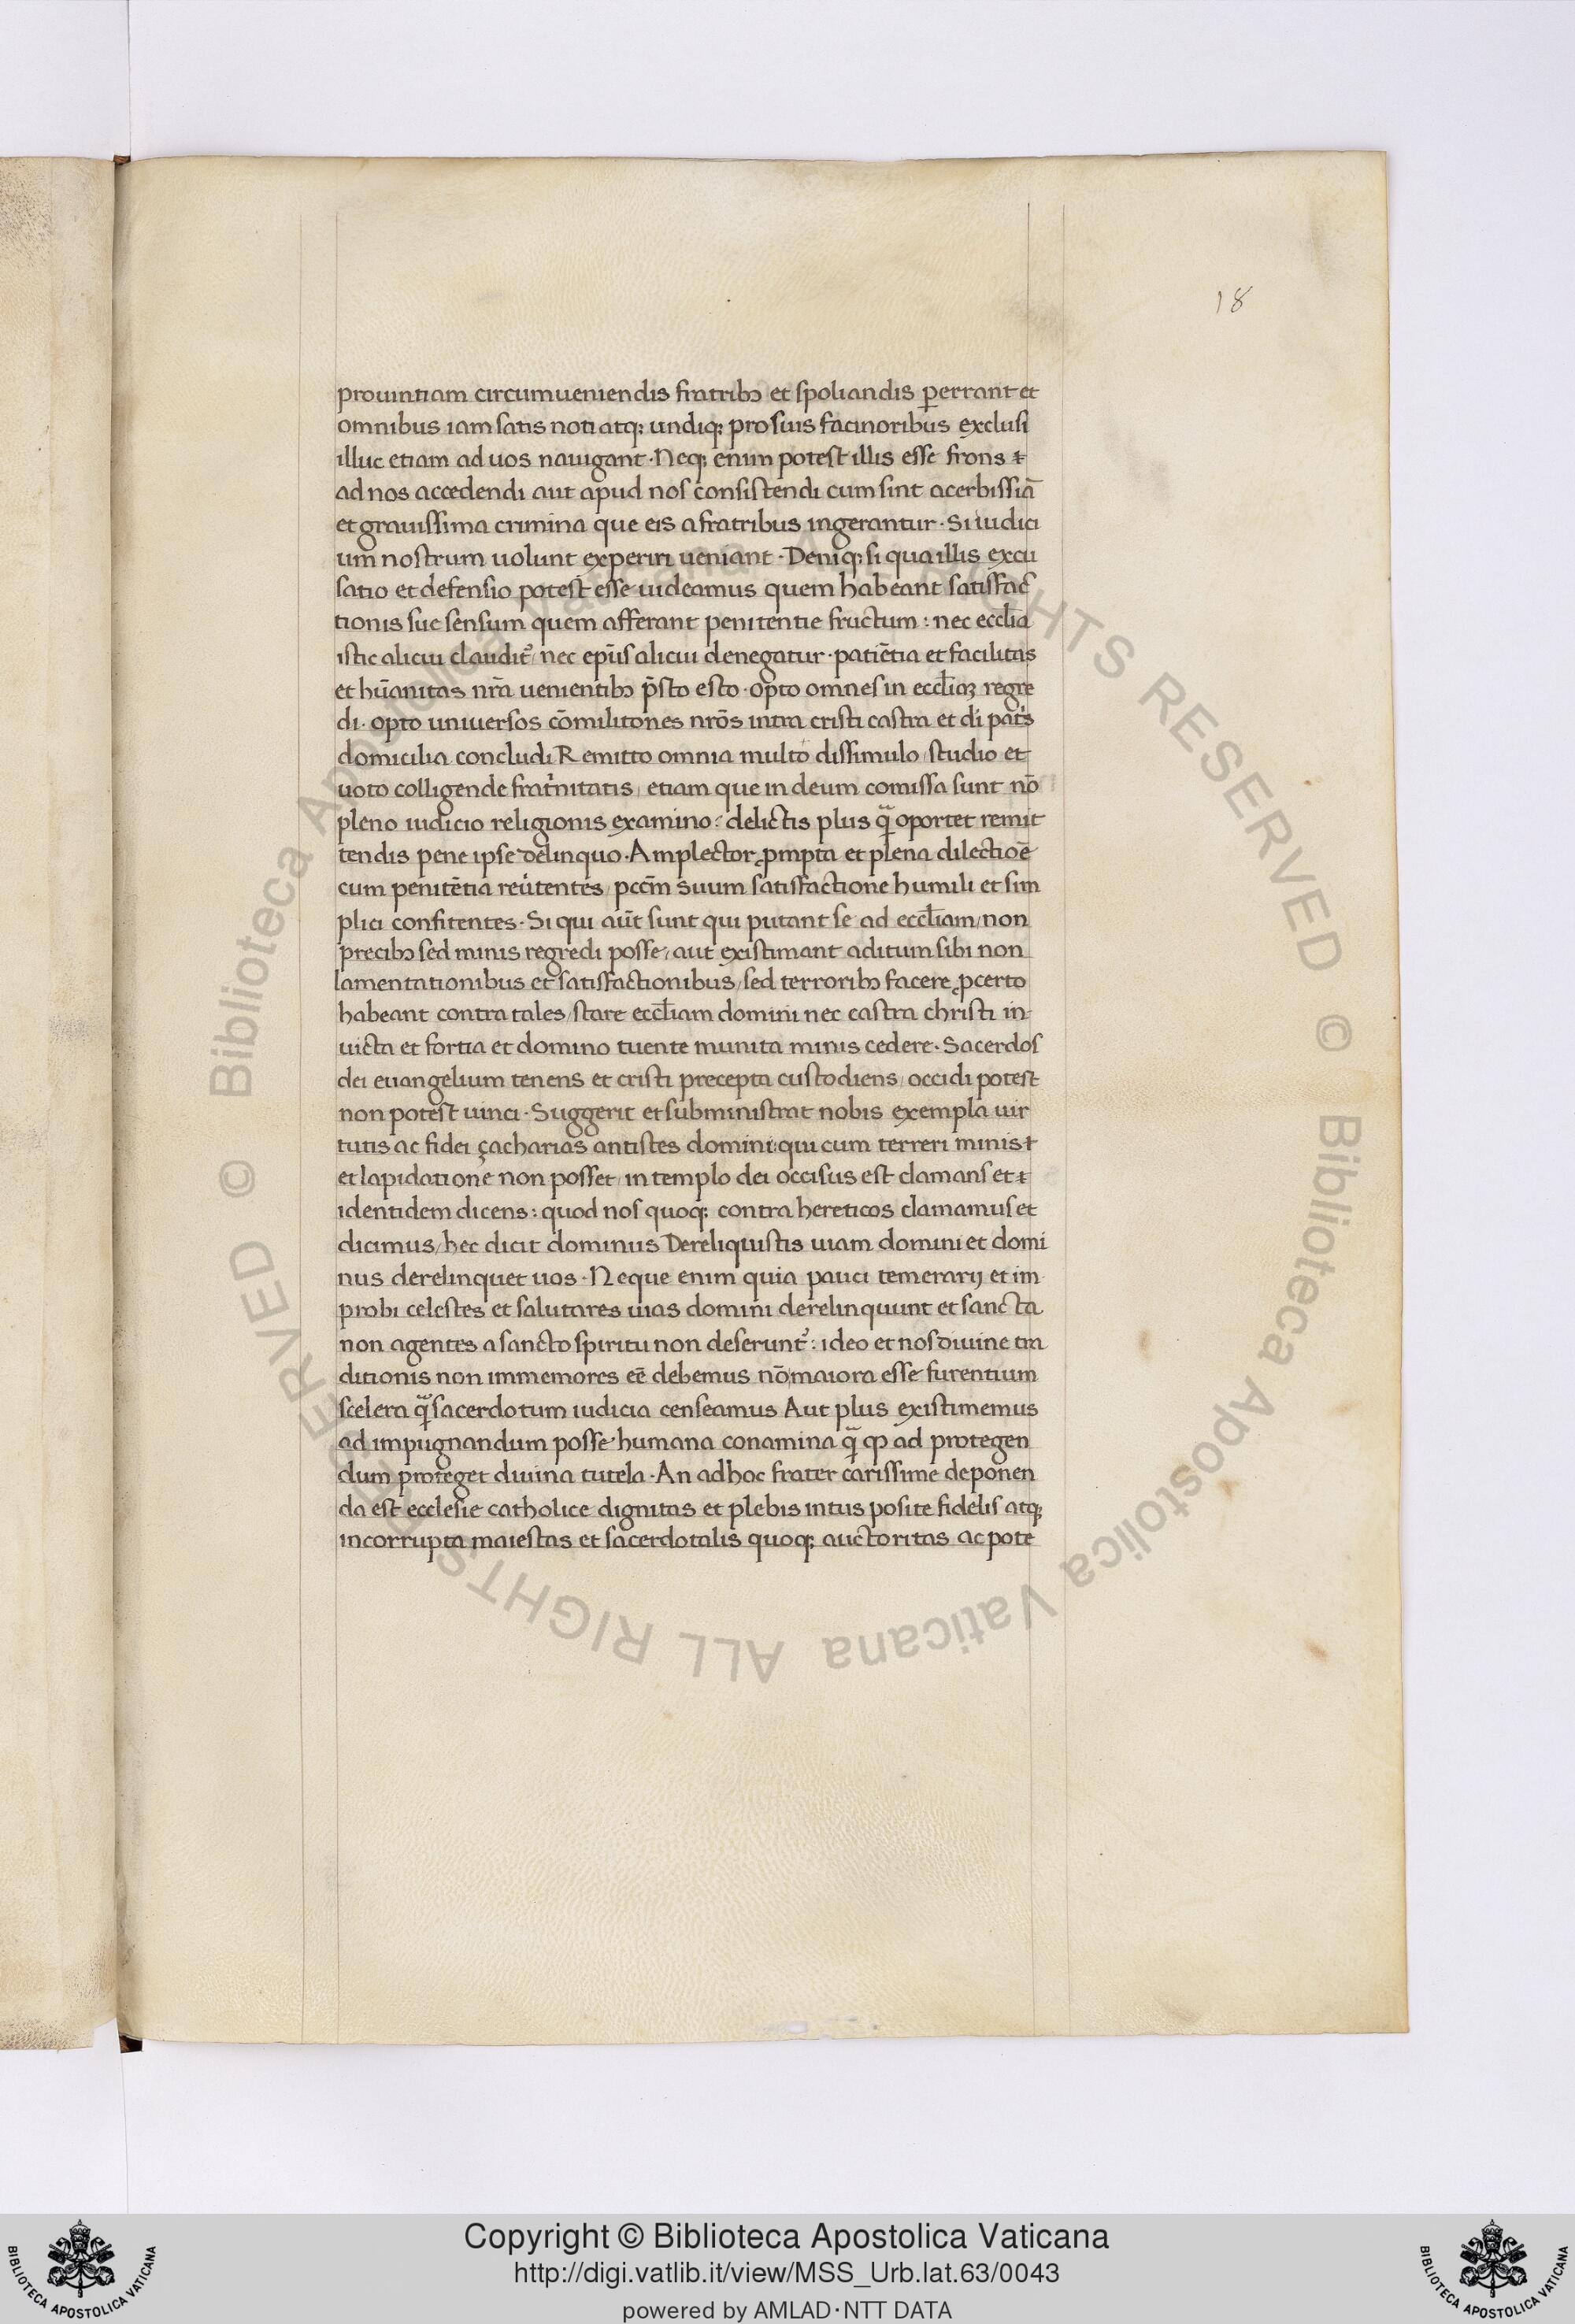 18
prouintiam circumueniendis fratribꝫ et spoliandis ꝑerrant et
omnibus iam satis noti atqꝫ undiqꝫ pro suis facinoribus exclusi
illuc etiam ad uos nauigant · Neqꝫ enim potest illis esse frons
ad nos accedendi aut apud nos consistendi cum sint acerbissiā
et grauissima crimina que eis a fratribus ingerantur · Si iudici
um nostrum uolunt experiri ueniant · Deniqꝫ si qua illis excu
satio et defensio potest esse uideamus quem habeant satisfac
tionis sue sensum quem afferant penitentie fructum : nec eccl̄ia
istic alicui claudit᷒ / nec ep̄us alicui denegatur · patiētia et facilitas
et hūanitas nr̄a uenientibꝫ p̄sto esto · opto omnes in eccl̄iaꝫ regre
di · opto uniuersos cōmilitones nrōs intra cristi castra et di pat̓s
domicilia concludi Remitto omnia multo dissimulo / studio et
uoto colligende frat̓nitatis / etiam que in deum comissa sunt nō
pleno iudicio religionis examino : delictis plus qᷓ oportet remit
tendis pene ipse delinquo · Amplector ꝓmpta et plena dilectioē
cum penitētia reu̓tentes / pcc̄m suum satisfactione humili et sim
plici confitentes · Si qui aūt sunt qui putant se ad eccl̄iam / non
precibꝫ sed minis regredi posse / aut existimant aditum sibi non
lamentationibus et satisfactionibus / sed terroribꝫ facere ꝓcerto
habeant contra tales / stare eccl̄iam domini nec castra christi in
uicta et fortia et domino tuente munita minis cedere · Sacerdos
dei euangelium tenens et cristi precepta custodiens / occidi potest
non potest uinci · Suggerit et subministrat nobis exempla uir
tutis ac fidei çacharias antistes domini qui cum terreri minis
et lapidatione non posset / in templo dei occisus est clamans et
identidem dicens : quod nos quoqꝫ contra hereticos clamamus et
dicimus / hec dicit dominus Dereliquistis uiam domini et domi
nus derelinquet uos · Neque enim quia pauci temerarij et im
probi celestes et salutares uias domini derelinquunt et sancta
non agentes a sancto spiritu non deserunt᷒ : ideo et nos diuine tra
ditionis non immemores eē debemus nō maiora esse furentium
scelera qᷓ sacerdotum iudicia censeamus Aut plus existimemus
ad impugnandum posse humana conamina qᷓ ꝙ ad protegen
dum proteget diuina tutela · An ad hoc frater carissime deponen
da est ecclesie catholice dignitas et plebis intus posite fidelis atqꝫ
incorrupta maiestas et sacerdotalis quoqꝫ auctoritas ac pote
© Biblioteca Apostolica Vaticana ALL RIGHTS RESERVED © Biblioteca Apostolica Vaticana ALL RIGHTS RESERVED
Copyright © Biblioteca Apostolica Vaticana
http://digi.vatlib.it/view/MSS_Urb.lat.63/0043
powered by AMLAD·NTT DATA
BIBLIOTECA APOSTOLICA VATICANA
BIBLIOTECA APOSTOLICA VATICANA